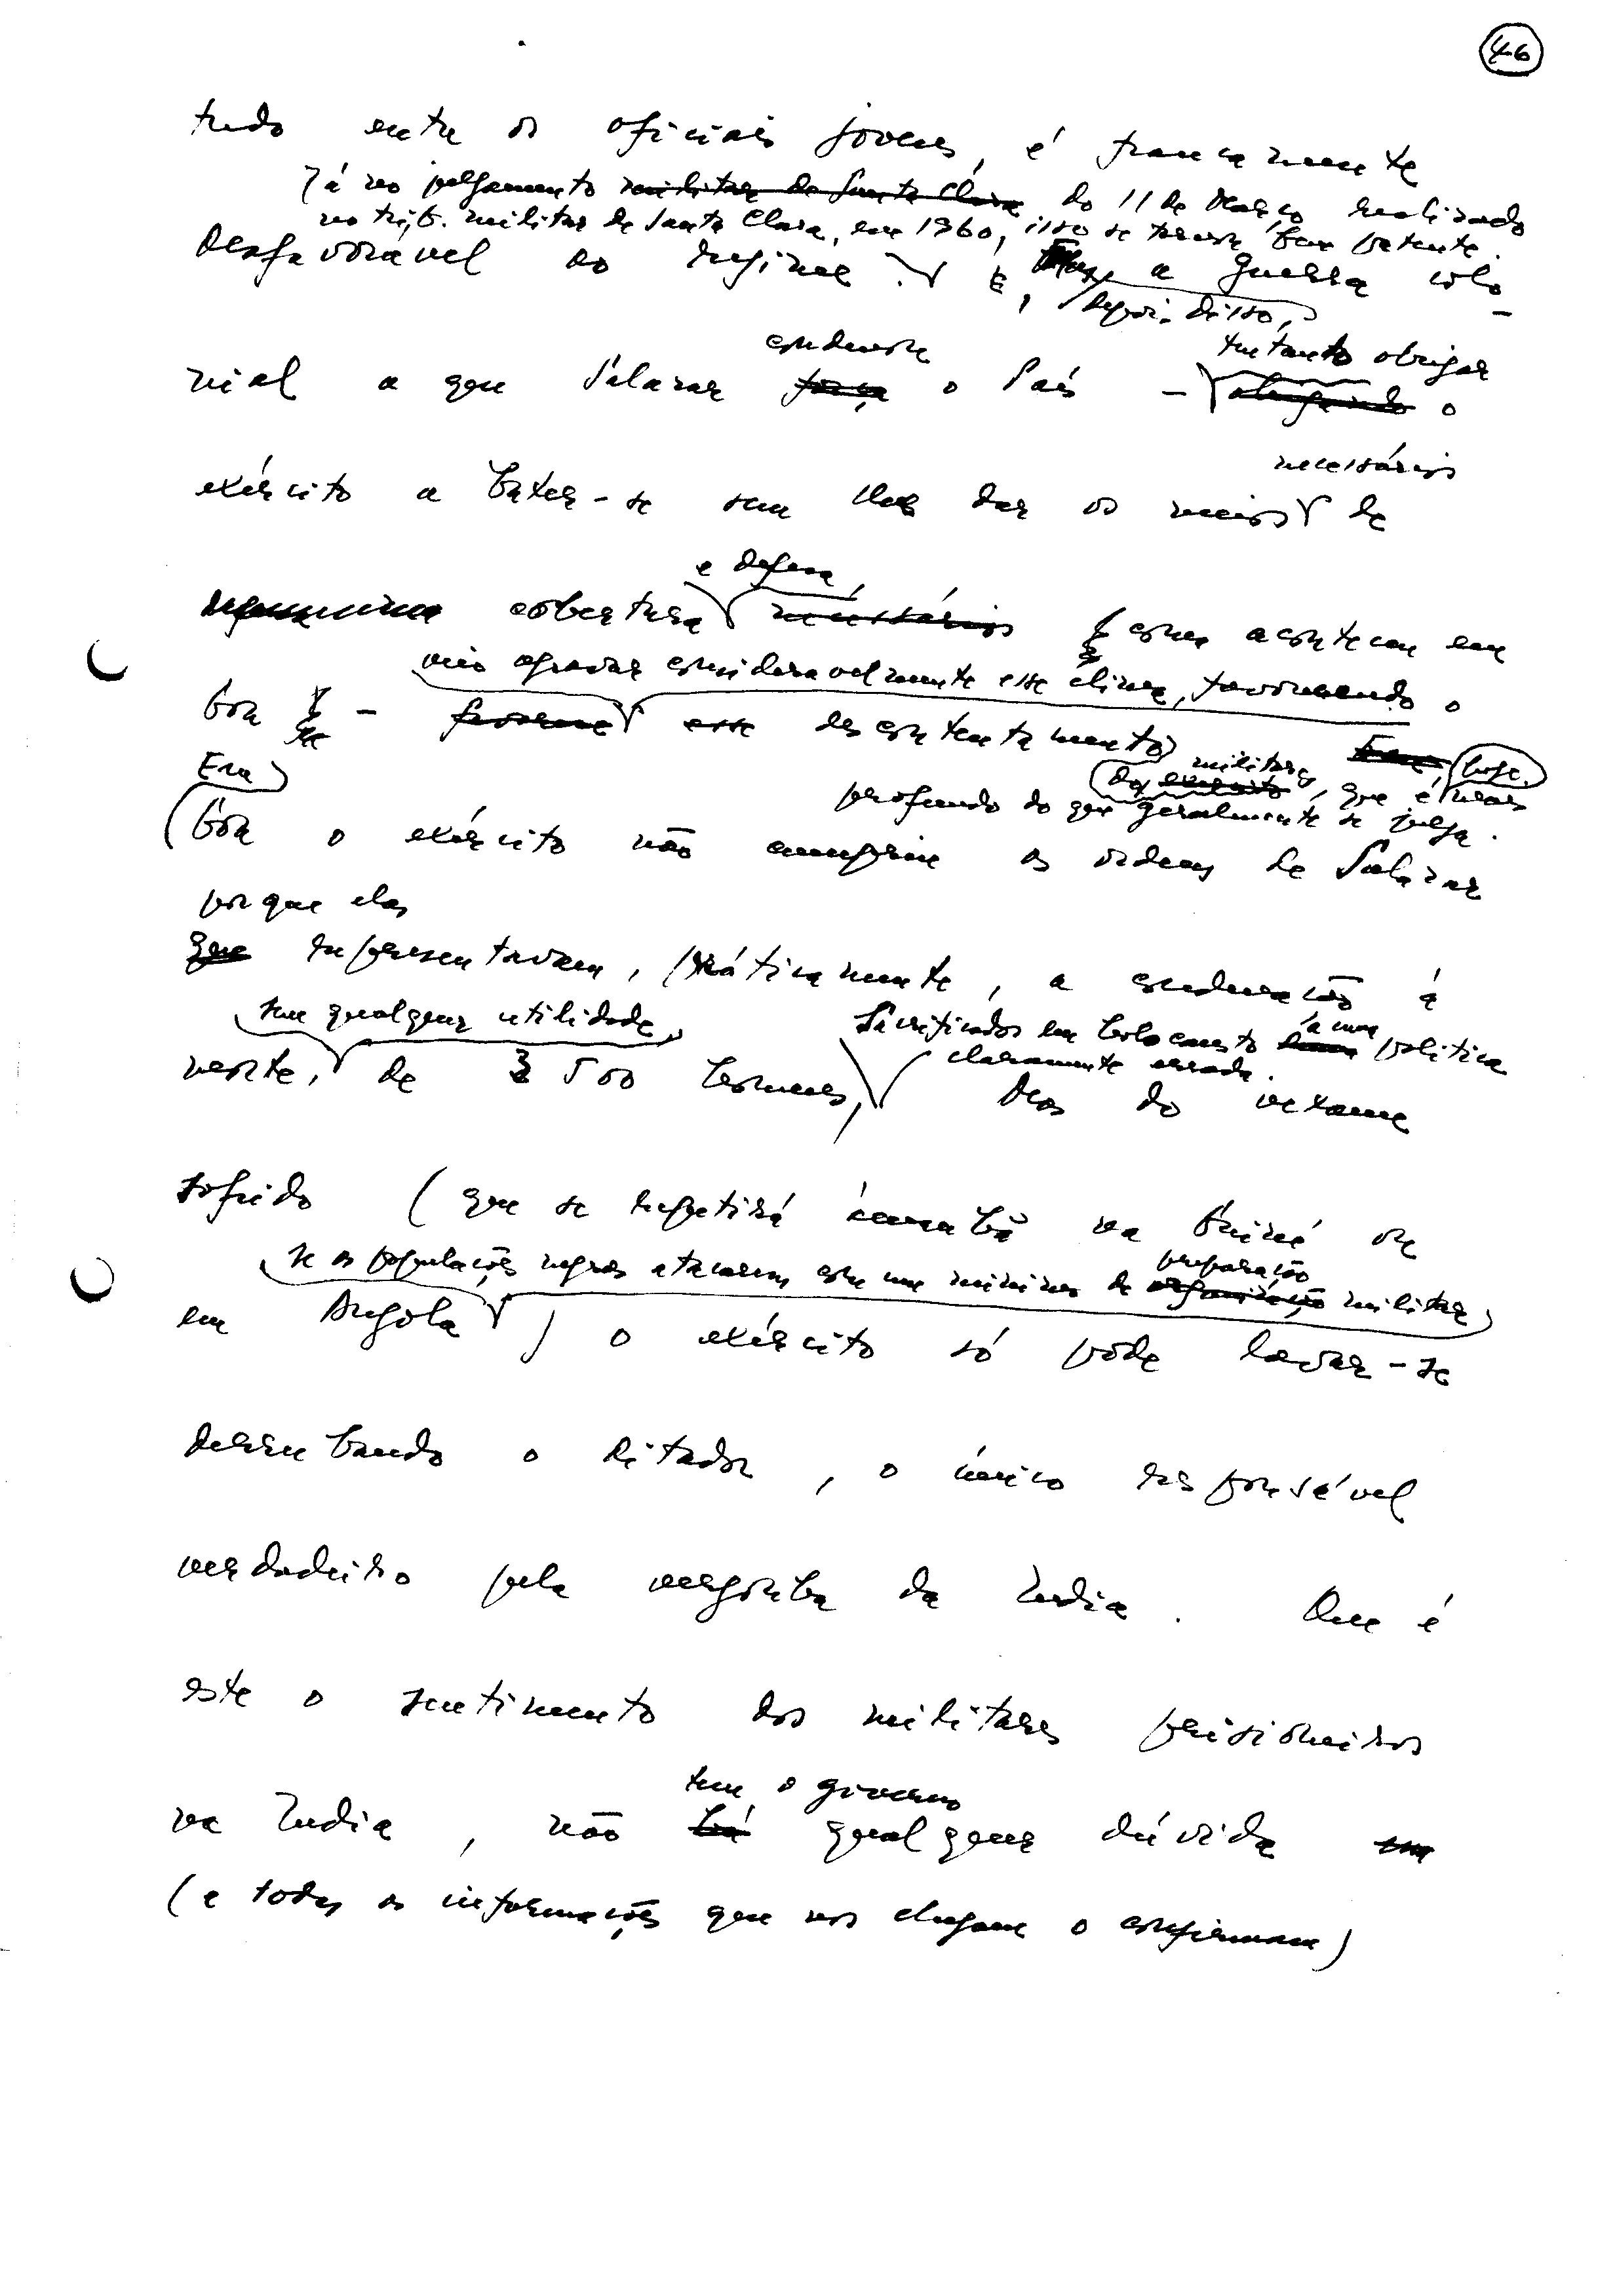 46
tudo entre os oficiais jovens, é francamente
Já no julgamento militar de Santa Clara do 11 de Março realizado
no trib. militar de Santa Clara, em 1960, isso se tornou bem patente.
desfavorável ao regime. E, a guerra colo-
depois disso,
condenou tentando obrigar
nial a que Salazar força o País - obrigando o
necessários
exército a bater-se sem lhe dar os meios de
e defesa,
cobertura necessários como aconteceu em
veio agravar consideravelmente esse clima, favorecendo o
Goa - favorece esse descontentamento
Em militares hoje,
dos exército, que é mais
profundo do que geralmente se julga.
Goa o exército não cumpriu as ordens de Salazar
porque elas
que representavam, práticamente, a condenação à
sem qualquer utilidade, Sacrificados em holocausto a uma política
claramente errada.
morte, de 3 500 homens, Mas do vexame
sofrido (que se repetirá amanhã na Guiné ou
se as populações negras atacarem com um mínimo de organização preparação militar
em Angola) o exército só pode lavar-se
derrubando o ditador, o único responsável
verdadeiro pela vergonha da India. Que é
este o sentimento dos militares prisioneiros
tem o governo
na India, não há qualquer dúvida em
(e todas as informações que nos chegam o confirmam)